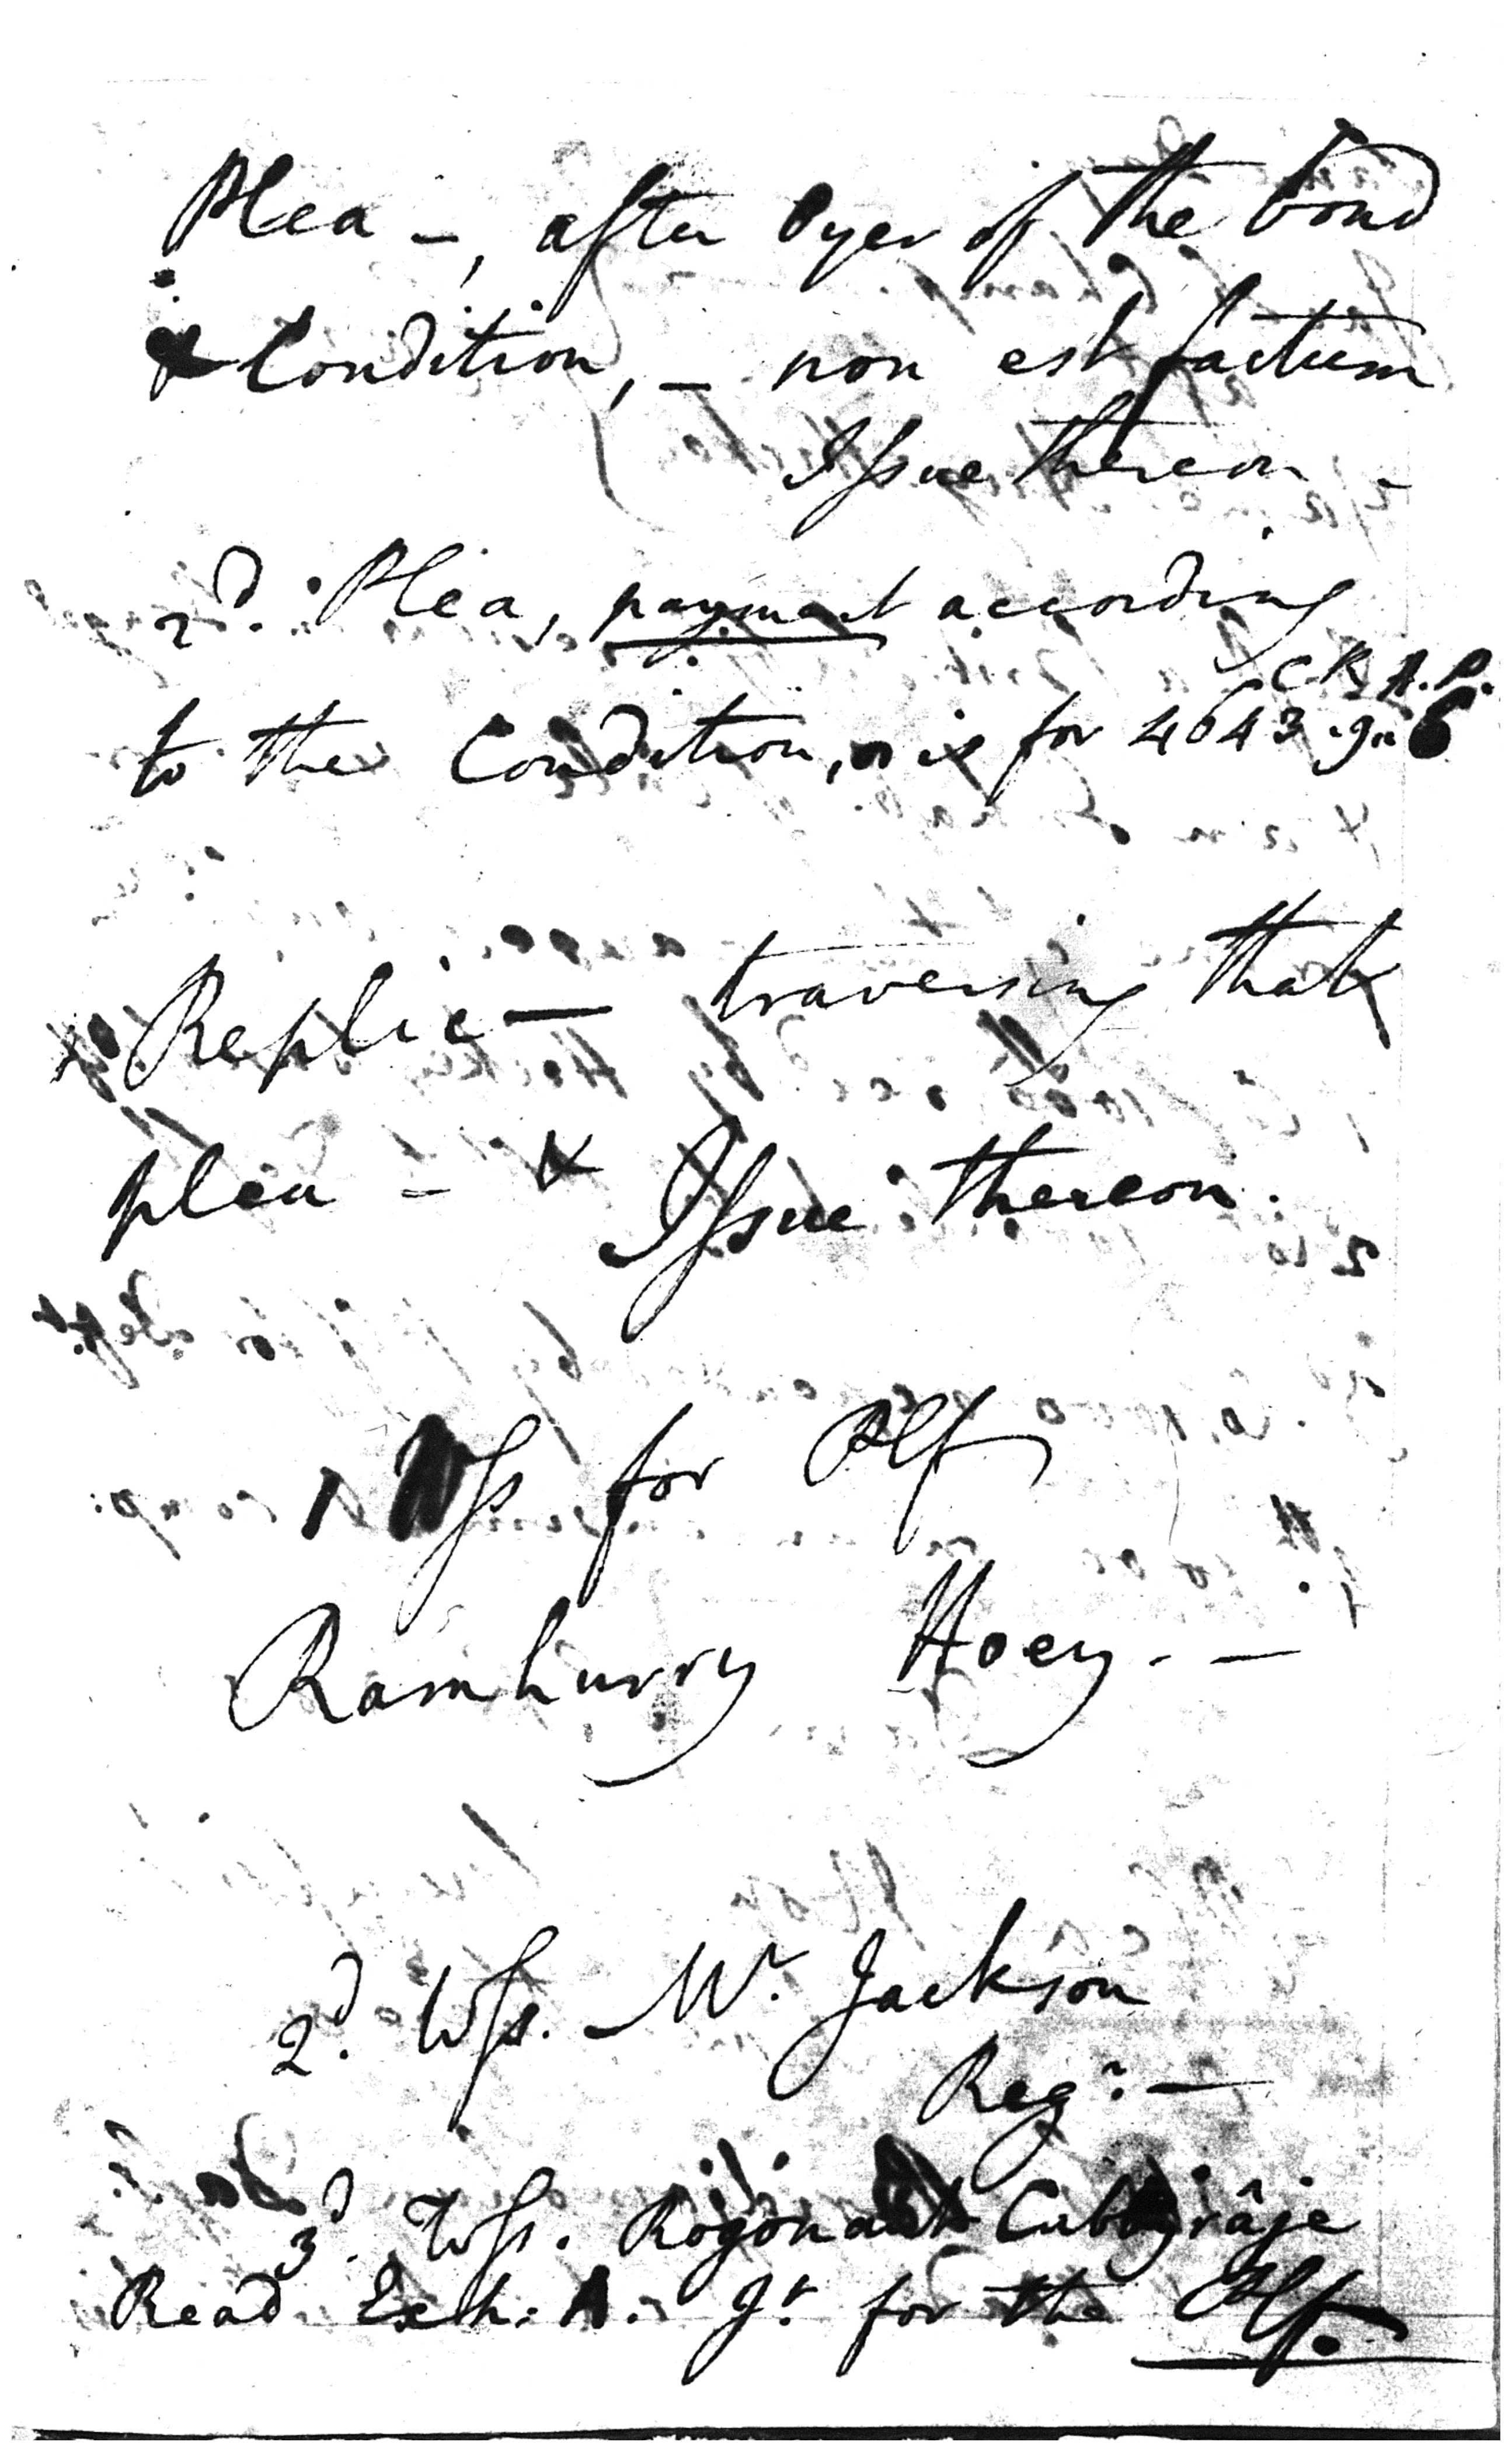 Plea —, after Oyer of the bond
& Condition, — non est factum
Issue thereon —
2d. Plea, payment according
C.R. A. P.
to the Condition, is for 4643 . 9 . 6
Replic— traversing that
plea — & Issue thereon.
1 Wss for Plf
Ramhurry Hoey. —
2d. Wss. Mr. Jackson
Regr. —
3d. Wss. Rogonaut Cubbyrâje
Read Exh: A. Jt. for the Plf.